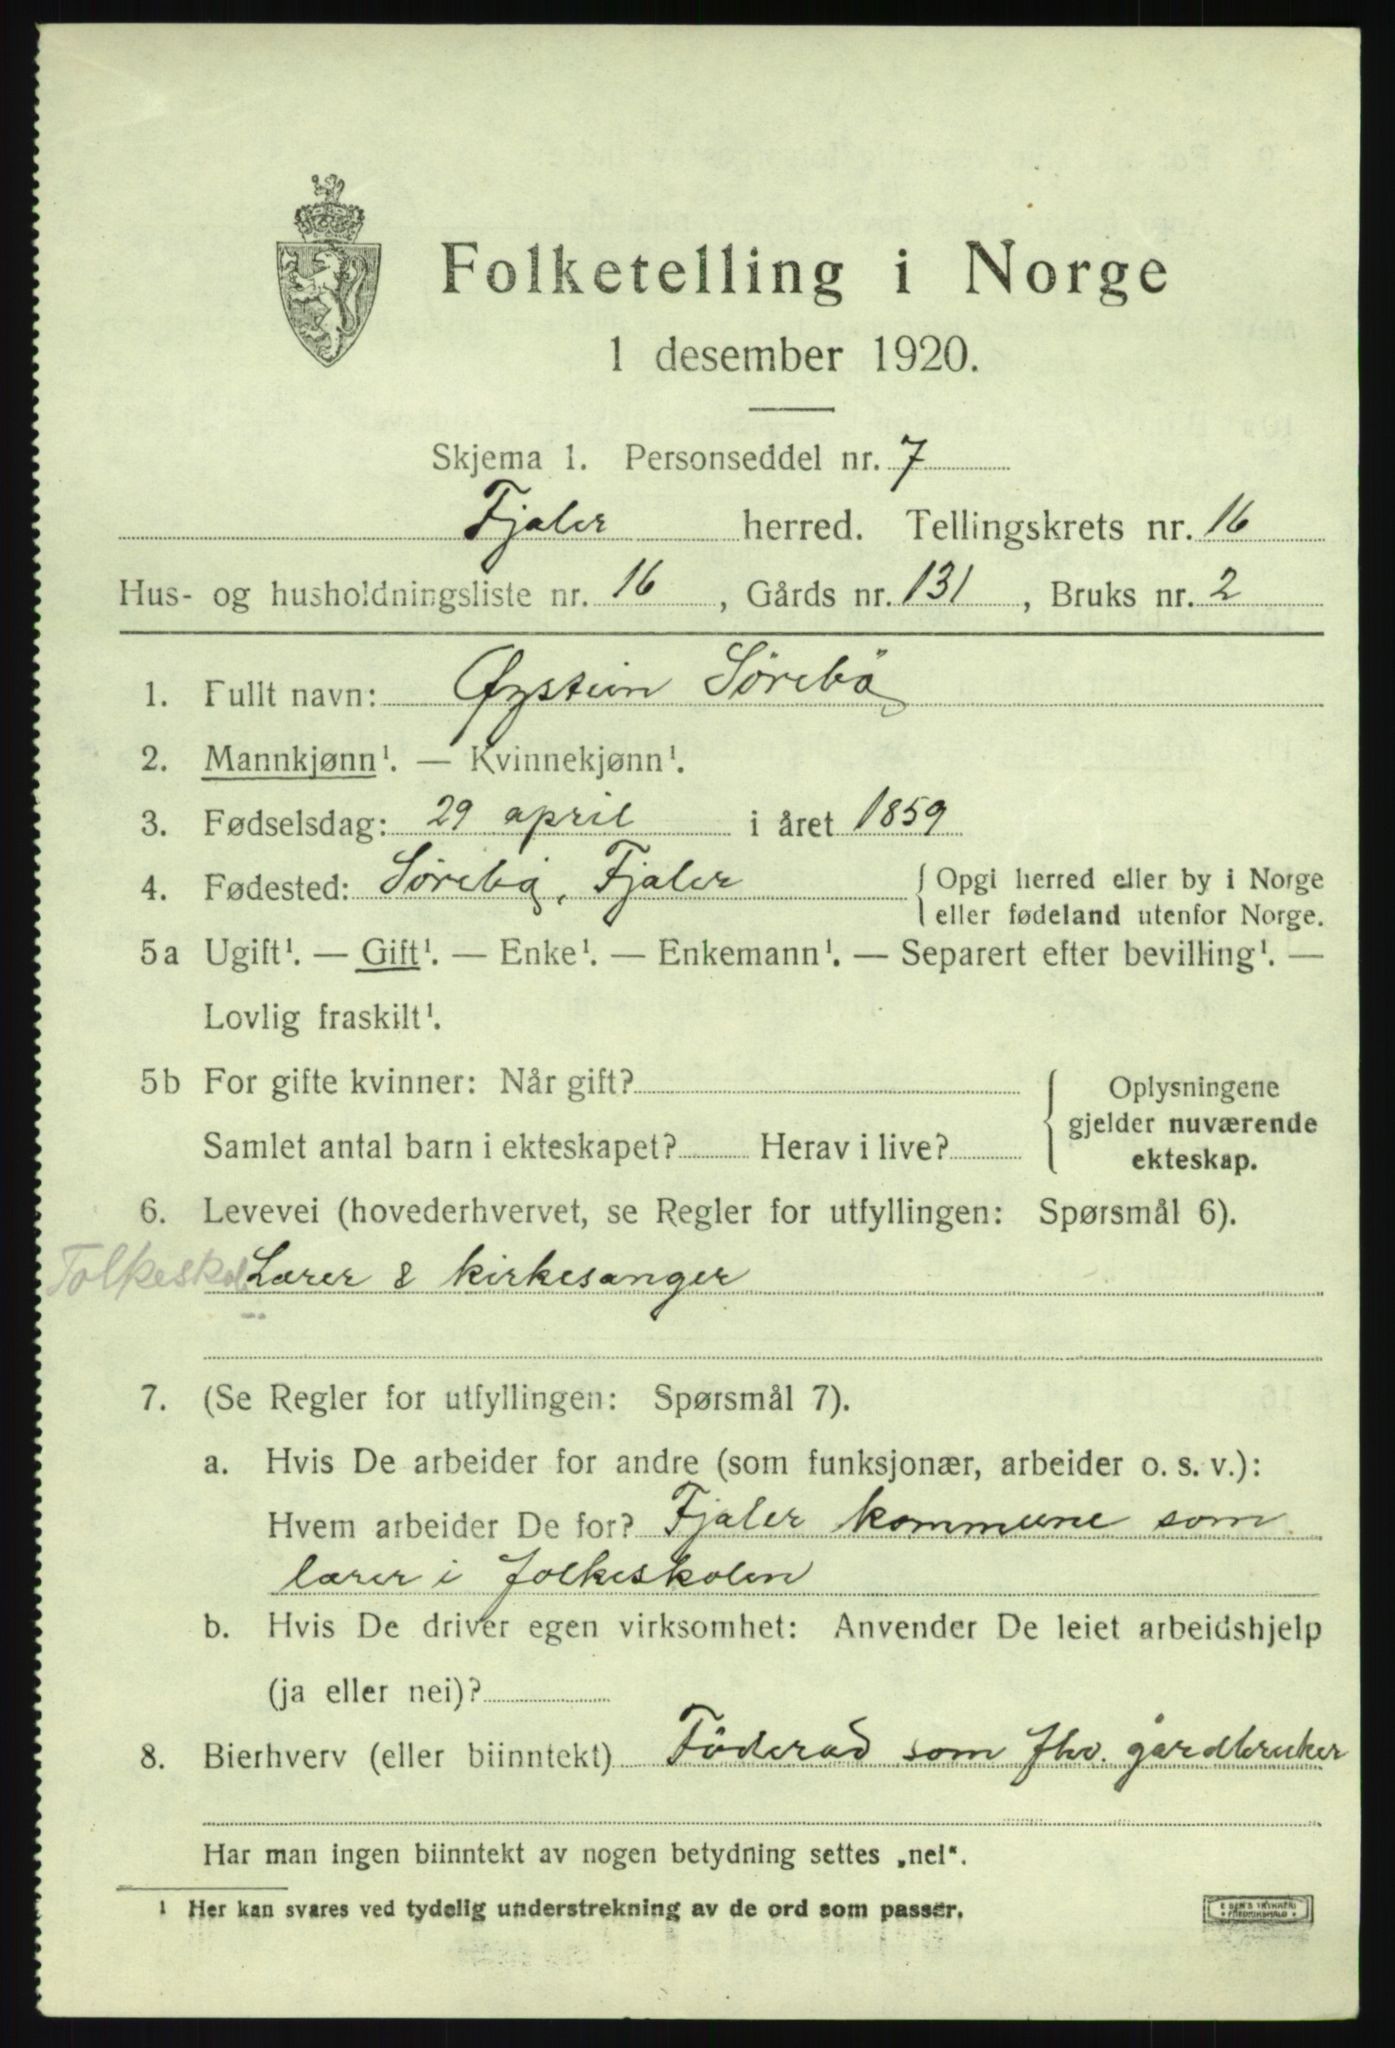 Folketelling i Norge
1 desember 1920.
Skjema 1. Personseddel nr. 7
Fjaler herred. Tellingskrets nr. 16
Hus- og husholdningsliste nr. 16, Gårds nr. 131, Bruks nr. 2
1. Fullt navn: Øystein Sörebö
2. Mannkjønn¹. — Kvinnekjønn¹.
3. Fødselsdag: 29 april i året 1859
4. Fødested: Sörebö, Fjaler { Opgi herred eller by i Norge
eller fødeland utenfor Norge.
5a Ugift¹. — Gift¹. — Enke¹. — Enkemann¹. — Separert efter bevilling¹. —
Lovlig fraskilt¹.
5b For gifte kvinner: Når gift? { Oplysningene
gjelder nuværende
Samlet antal barn i ekteskapet? Herav i live?
ekteskap.
6. Levevei (hovederhvervet, se Regler for utfyllingen: Spørsmål 6).
Folkeskol Lærer & kirkesanger
7. (Se Regler for utfyllingen: Spørsmål 7).
a. Hvis De arbeider for andre (som funksjonær, arbeider o. s. v.):
Hvem arbeider De for? Fjaler kommune som
lærer i folkeskolen
b. Hvis De driver egen virksomhet: Anvender De leiet arbeidshjelp
(ja eller nei)?
8. Bierhverv (eller biinntekt) Föderad som fhv. gårdbruker
Har man ingen biinntekt av nogen betydning settes „nei“.
¹ Her kan svares ved tydelig understrekning av de ord som passer.